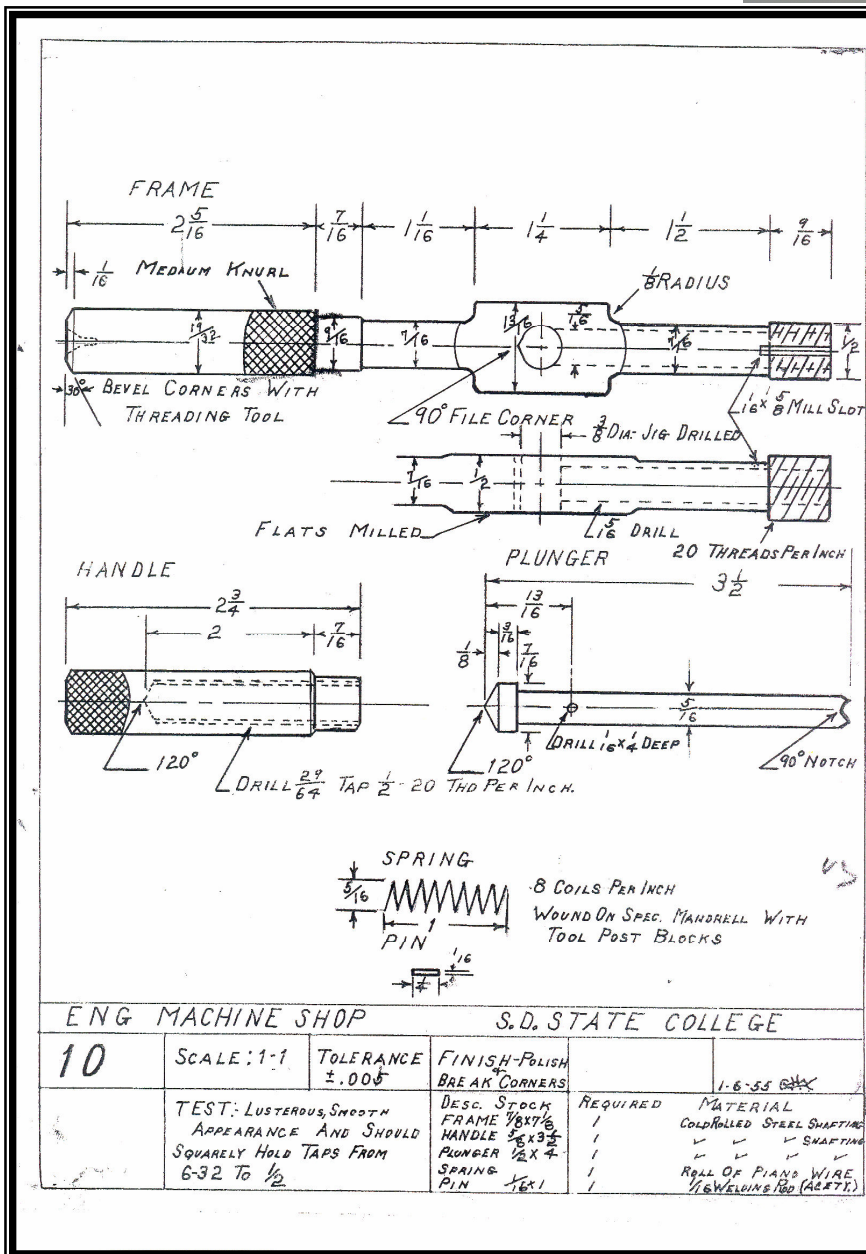 FRAME
2 5/16 7/16 1 1/16 1 1/4 1 1/2 9/16
1/16 MEDIUM KNURL
1/8 RADIUS
19/32 9/16 7/16 13/16 5/16 7/16 1/2
30° BEVEL CORNERS WITH
THREADING TOOL
90° FILE CORNER
1/16 x 5/8 MILL SLOT
3/8 DIA- JIG DRILLED
7/16 1/2
FLATS MILLED
5/16 DRILL
20 THREADS PER INCH
HANDLE
2 3/4
2 7/16
120°
DRILL 29/64 TAP 1/2-20 THD PER INCH.
PLUNGER
3 1/2
13/16
3/16
1/8 7/16
5/16
120°
DRILL 1/16 x 1/4 DEEP
90° NOTCH
SPRING
5/16
1
8 COILS PER INCH
WOUND ON SPEC. MANDRELL WITH
TOOL POST BLOCKS
PIN
1/16
1/4
ENG MACHINE SHOP S.D. STATE COLLEGE
10
SCALE: 1-1
TOLERANCE
±.005
FINISH-POLISH
&
BREAK CORNERS
1-6-55
TEST: LUSTEROUS, SMOOTH
APPEARANCE AND SHOULD
SQUARELY HOLD TAPS FROM
6-32 TO 1/2
DESC. STOCK REQUIRED MATERIAL
FRAME 7/8 x 7 1/8 1 COLD ROLLED STEEL SHAFTING
HANDLE 5/8 x 3 1/2 1 ✓ ✓ ✓ SHAFTING
PLUNGER 1/2 x 4 1 ✓ ✓ ✓ ✓
SPRING 1 ROLL OF PIANO WIRE
PIN 1/16 x 1 1 1/16 WELDING ROD (ACETY.)